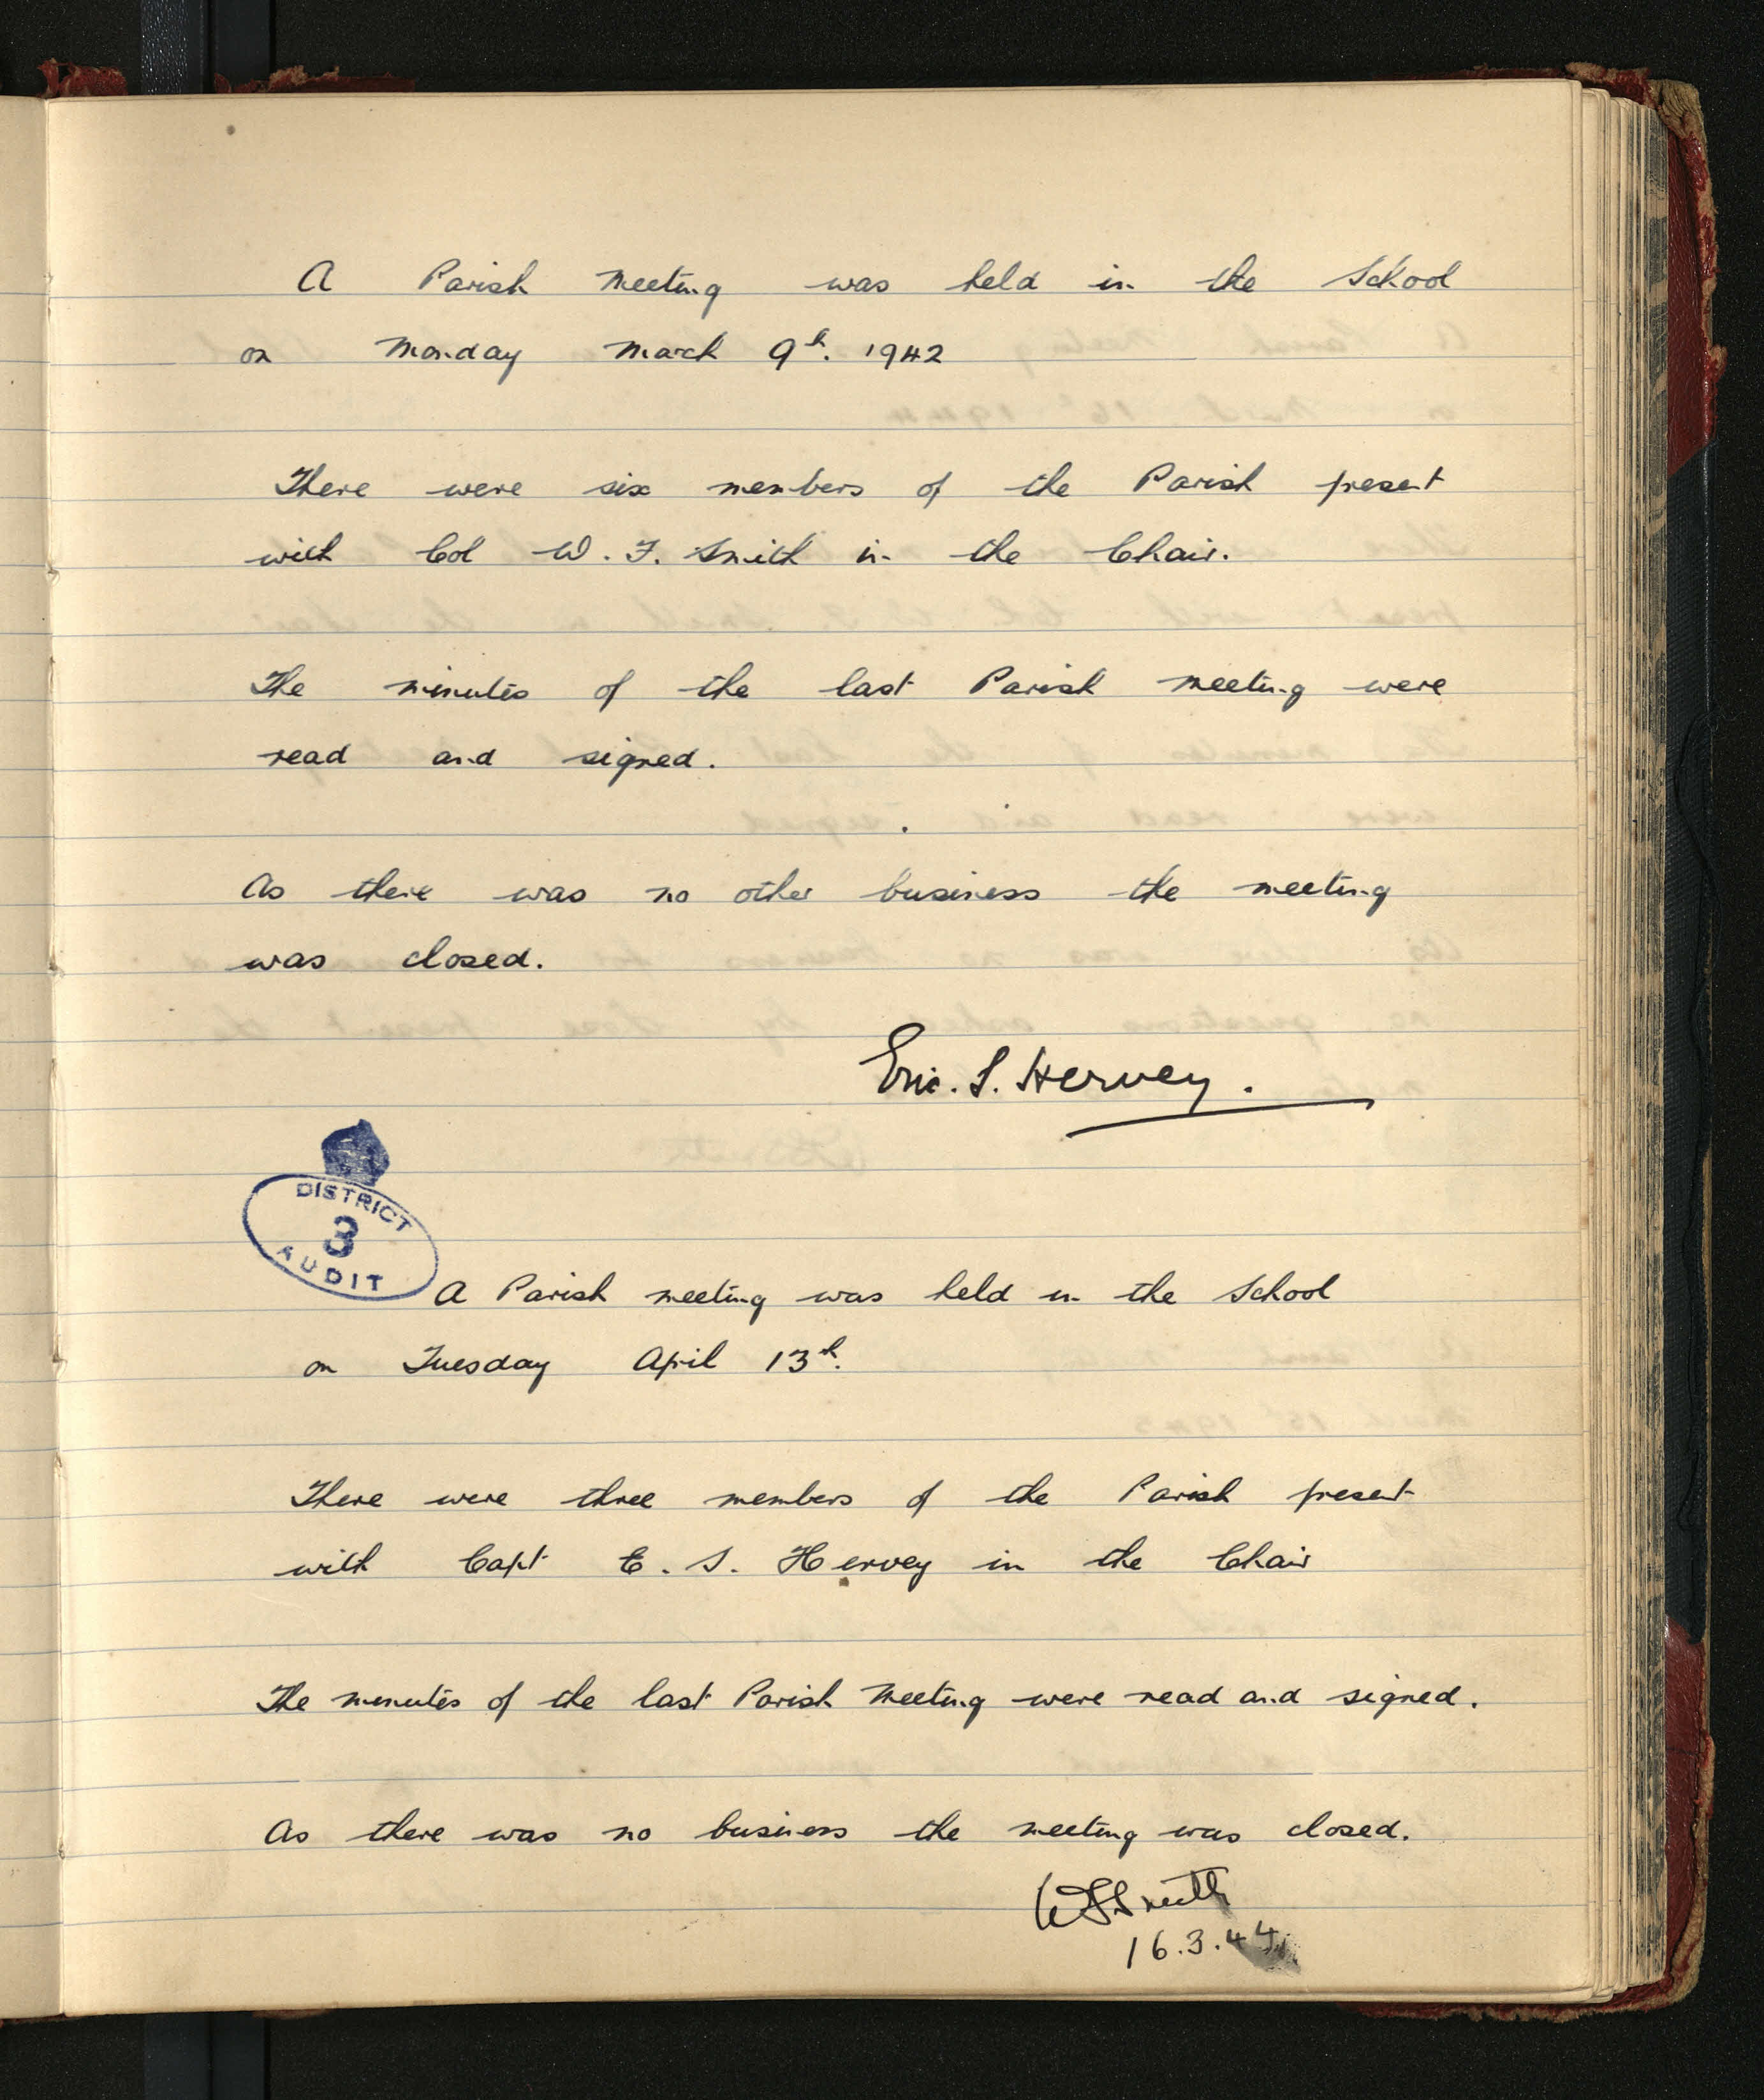 A Parish Meeting was held in the School
on Monday March 9th. 1942
There were six members of the Parish present
with Col W. F. Smith in the Chair.
The minutes of the last Parish meeting were
read and signed.
As there was no other business the meeting
was closed.
Eric. S. Hervey.
DISTRICT
3
AUDIT
A Parish meeting was held in the School
on Tuesday April 13th.
There were three members of the Parish present
with Capt E. S. Hervey in the Chair
The minutes of the last Parish Meeting were read and signed.
As there was no business the meeting was closed.
WFSmith
16.3.44